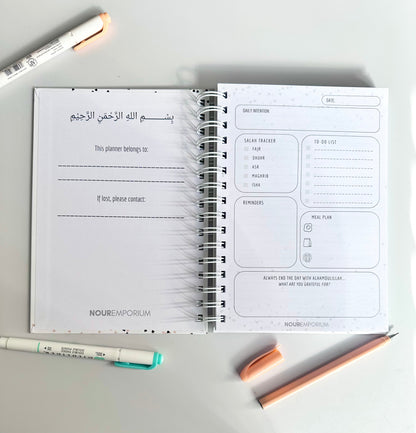 بِسْــــمِ اللهِ الرَّحْمَنِ الرَّحِيْمِ
This planner belongs to:
If lost, please contact:
NOUREMPORIUM
DATE:
DAILY INTENTION:
SALAH TRACKER
FAJR
DHUHR
ASR
MAGHRIB
ISHA
TO-DO LIST
REMINDERS
MEAL PLAN
ALWAYS END THE DAY WITH ALHAMDULILLAH...
WHAT ARE YOU GRATEFUL FOR?
NOUREMPORIUM